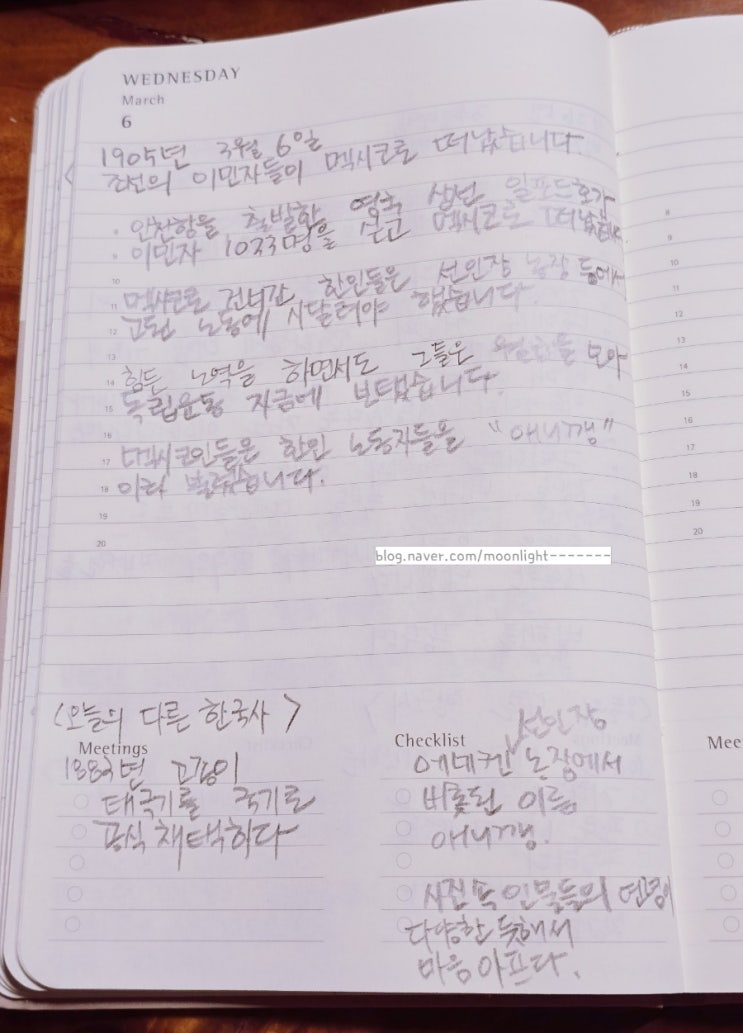 WEDNESDAY
March
6
1905년 3월 6일
조선의 이민자들이 멕시코로 떠났습니다.
8
인천항을 출발한 영국 상선 일포드호가
9
이민자 1033명을 싣고 멕시코로 떠났습니다
10
11 멕시코로 건너간 한인들은 선인장 농장 등에서
12 고된 노동에 시달려야 했습니다.
13
14 힘든 노역을 하면서도 그들은 모아
15 독립운동 자금에 보탰습니다.
16
17 멕시코인들은 한인 노동자들을 "애니깽"
18 이라 불렀습니다.
19
20
blog.naver.com/moonlight-------
8
9
10
11
12
13
14
15
16
17
18
19
20
<오늘의 다른 한국사>
Meetings
1883년 고종이
태극기를 국기로
공식 채택하다
Checklist
선인장
에네켄 농장에서
비롯된 이름
애니깽.
사진 속 인물들의 연령이
다양한 듯해서
마음 아프다.
Mee